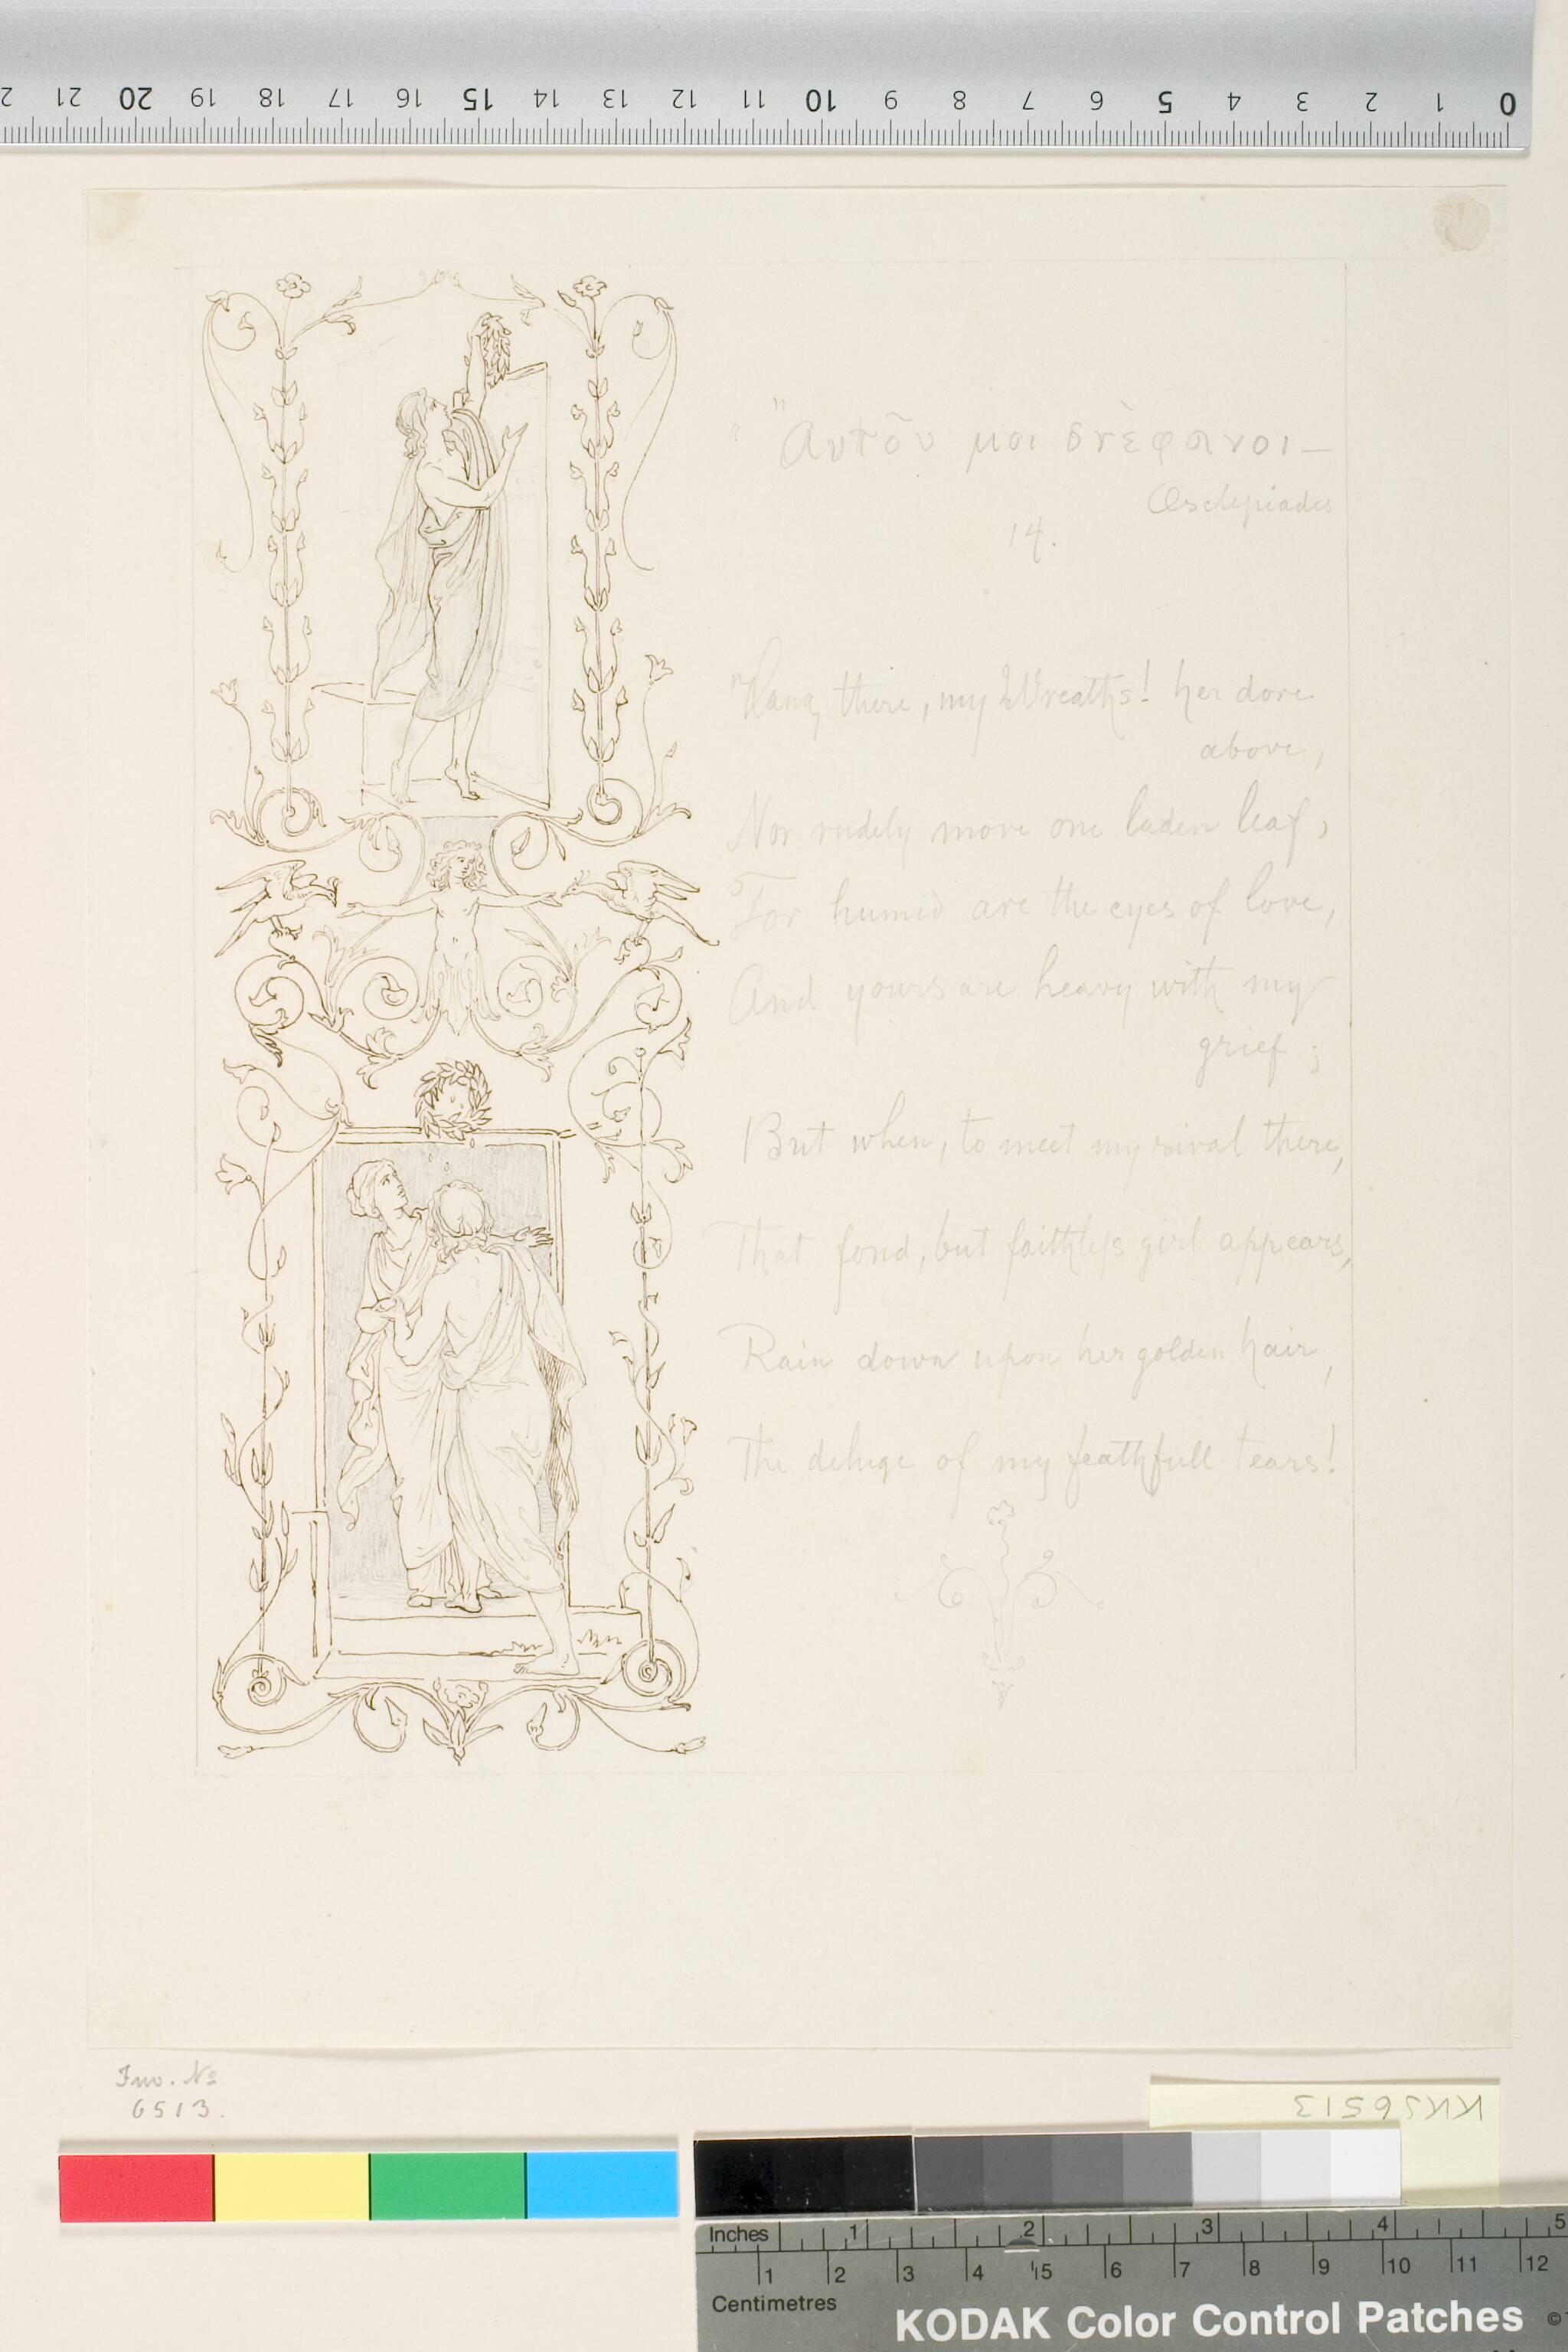 0 1 2 3 4 5 6 7 8 9 10 11 12 13 14 15 16 17 18 19 20 21 2
" "Αυτο͂υ μοι στὲφανοι—
Æsclepiades
14.
"Hang there, my Wreaths! her dore
above,
Nor rudely move one laden leaf,
For humid are the eyes of love,
And yours are heavy with my
grief;
But when, to meet my rival there,
That fond, but faithless girl appears,
Rain down upon her golden hair,
The deluge of my feathfull tears!
Inv. No
6513.
KKS6513
Inches 1 2 3 4 5
1 2 3 4 5 6 7 8 9 10 11 12
Centimetres
KODAK Color Control Patches ©